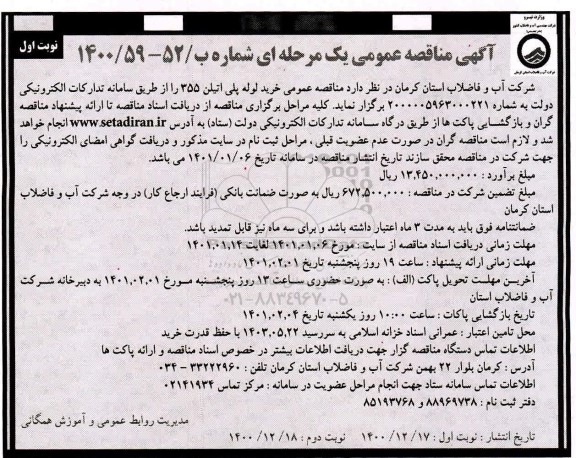 وزارت نیرو
شرکت مهندسی آب و فاضلاب کشور
شرکت آب و فاضلاب استان کرمان
نوبت اول
آگهی مناقصه عمومی یک مرحله ای شماره ۵۲/ب -۵۹-۱۴۰۰
شرکت آب و فاضلاب استان کرمان در نظر دارد مناقصه عمومی خرید لوله پلی اتیلن ۳۵۵ را از طریق سامانه تدارکات الکترونیکی
دولت به شماره ۲۰۰۰۰۰۵۹۶۳۰۰۰۲۲۱ برگزار نماید. کلیه مراحل برگزاری مناقصه از دریافت اسناد مناقصه تا ارائه پیشنهاد مناقصه
گران و بازگشـایی پاکت ها از طریق درگاه سـامانه تدارکات الکترونیکی دولت (ستاد) به آدرس www.setadiran.ir انجام خواهد
شد و لازم است مناقصه گران در صورت عدم عضویت قبلی ، مراحل ثبت نام در سایت مذکور و دریافت گواهی امضای الکترونیکی را
جهت شرکت در مناقصه محقق سازند تاریخ انتشار مناقصه در سامانه تاریخ ۱۴۰۱/۰۱/۰۶ می باشد.
مبلغ برآورد : ۱۳,۴۵۰,۰۰۰,۰۰۰ ریال
مبلغ تضمین شرکت در مناقصه : ۶۷۲,۵۰۰,۰۰۰ ریال به صورت ضمانت بانکی (فرایند ارجاع کار) در وجه شرکت آب و فاضلاب
استان کرمان
ضمانتنامه فوق باید به مدت ۳ ماه اعتبار داشته باشد و برای سه ماه نیز قابل تمدید باشد.
مهلت زمانی دریافت اسناد مناقصه از سایت : مورخ ۱۴۰۱,۰۱,۰۶ لغایت ۱۴۰۱,۰۱,۱۴
مهلت زمانی ارائه پیشنهاد : ساعت ۱۹ روز پنجشنبه تاریخ ۱۴۰۱,۰۲,۰۱
آخریـن مهلـت تحویل پاکت (الف) : به صورت حضوری سـاعت ۱۳ روز پنجشـنبه مـورخ ۱۴۰۱,۰۲,۰۱ به دبیرخانه شـرکت
آب و فاضلاب استان
۰۲۱-۸۸۳۴۹۶۷۰-۵
تاریخ بازگشایی پاکات : ساعت ۱۰:۰۰ روز یکشنبه تاریخ ۱۴۰۱,۰۲,۰۴
محل تامین اعتبار : عمرانی اسناد خزانه اسلامی به سررسید ۱۴۰۳,۰۵,۲۲ با حفظ قدرت خرید
اطلاعات تماس دستگاه مناقصه گزار جهت دریافت اطلاعات بیشتر در خصوص اسناد مناقصه و ارائه پاکت ها
آدرس : کرمان بلوار ۲۲ بهمن شرکت آب و فاضلاب استان کرمان تلفن : ۳۳۲۲۲۹۶۰ - ۰۳۴
اطلاعات تماس سامانه ستاد جهت انجام مراحل عضویت در سامانه : مرکز تماس ۰۲۱۴۱۹۳۴
دفتر ثبت نام : ۸۸۹۶۹۷۳۸ و ۸۵۱۹۳۷۶۸
مدیریت روابط عمومی و آموزش همگانی
تاریخ انتشار : نوبت اول : ۱۴۰۰/۱۲/۱۷ نوبت دوم : ۱۴۰۰/۱۲/۱۸